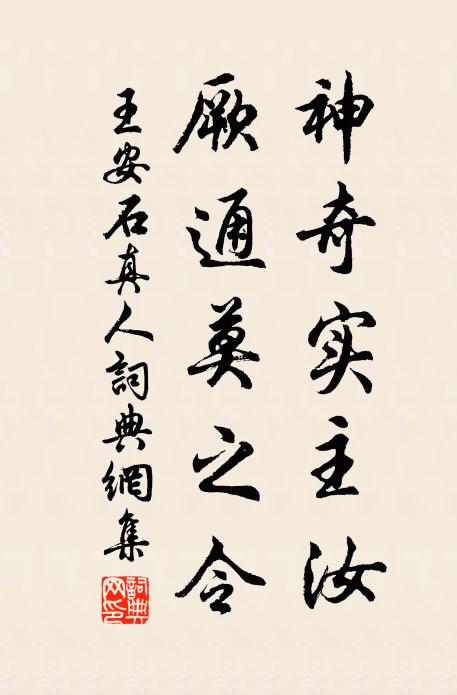 神奇实主汝
厥通莫之令
王安石真人詞典網集
詞典网印